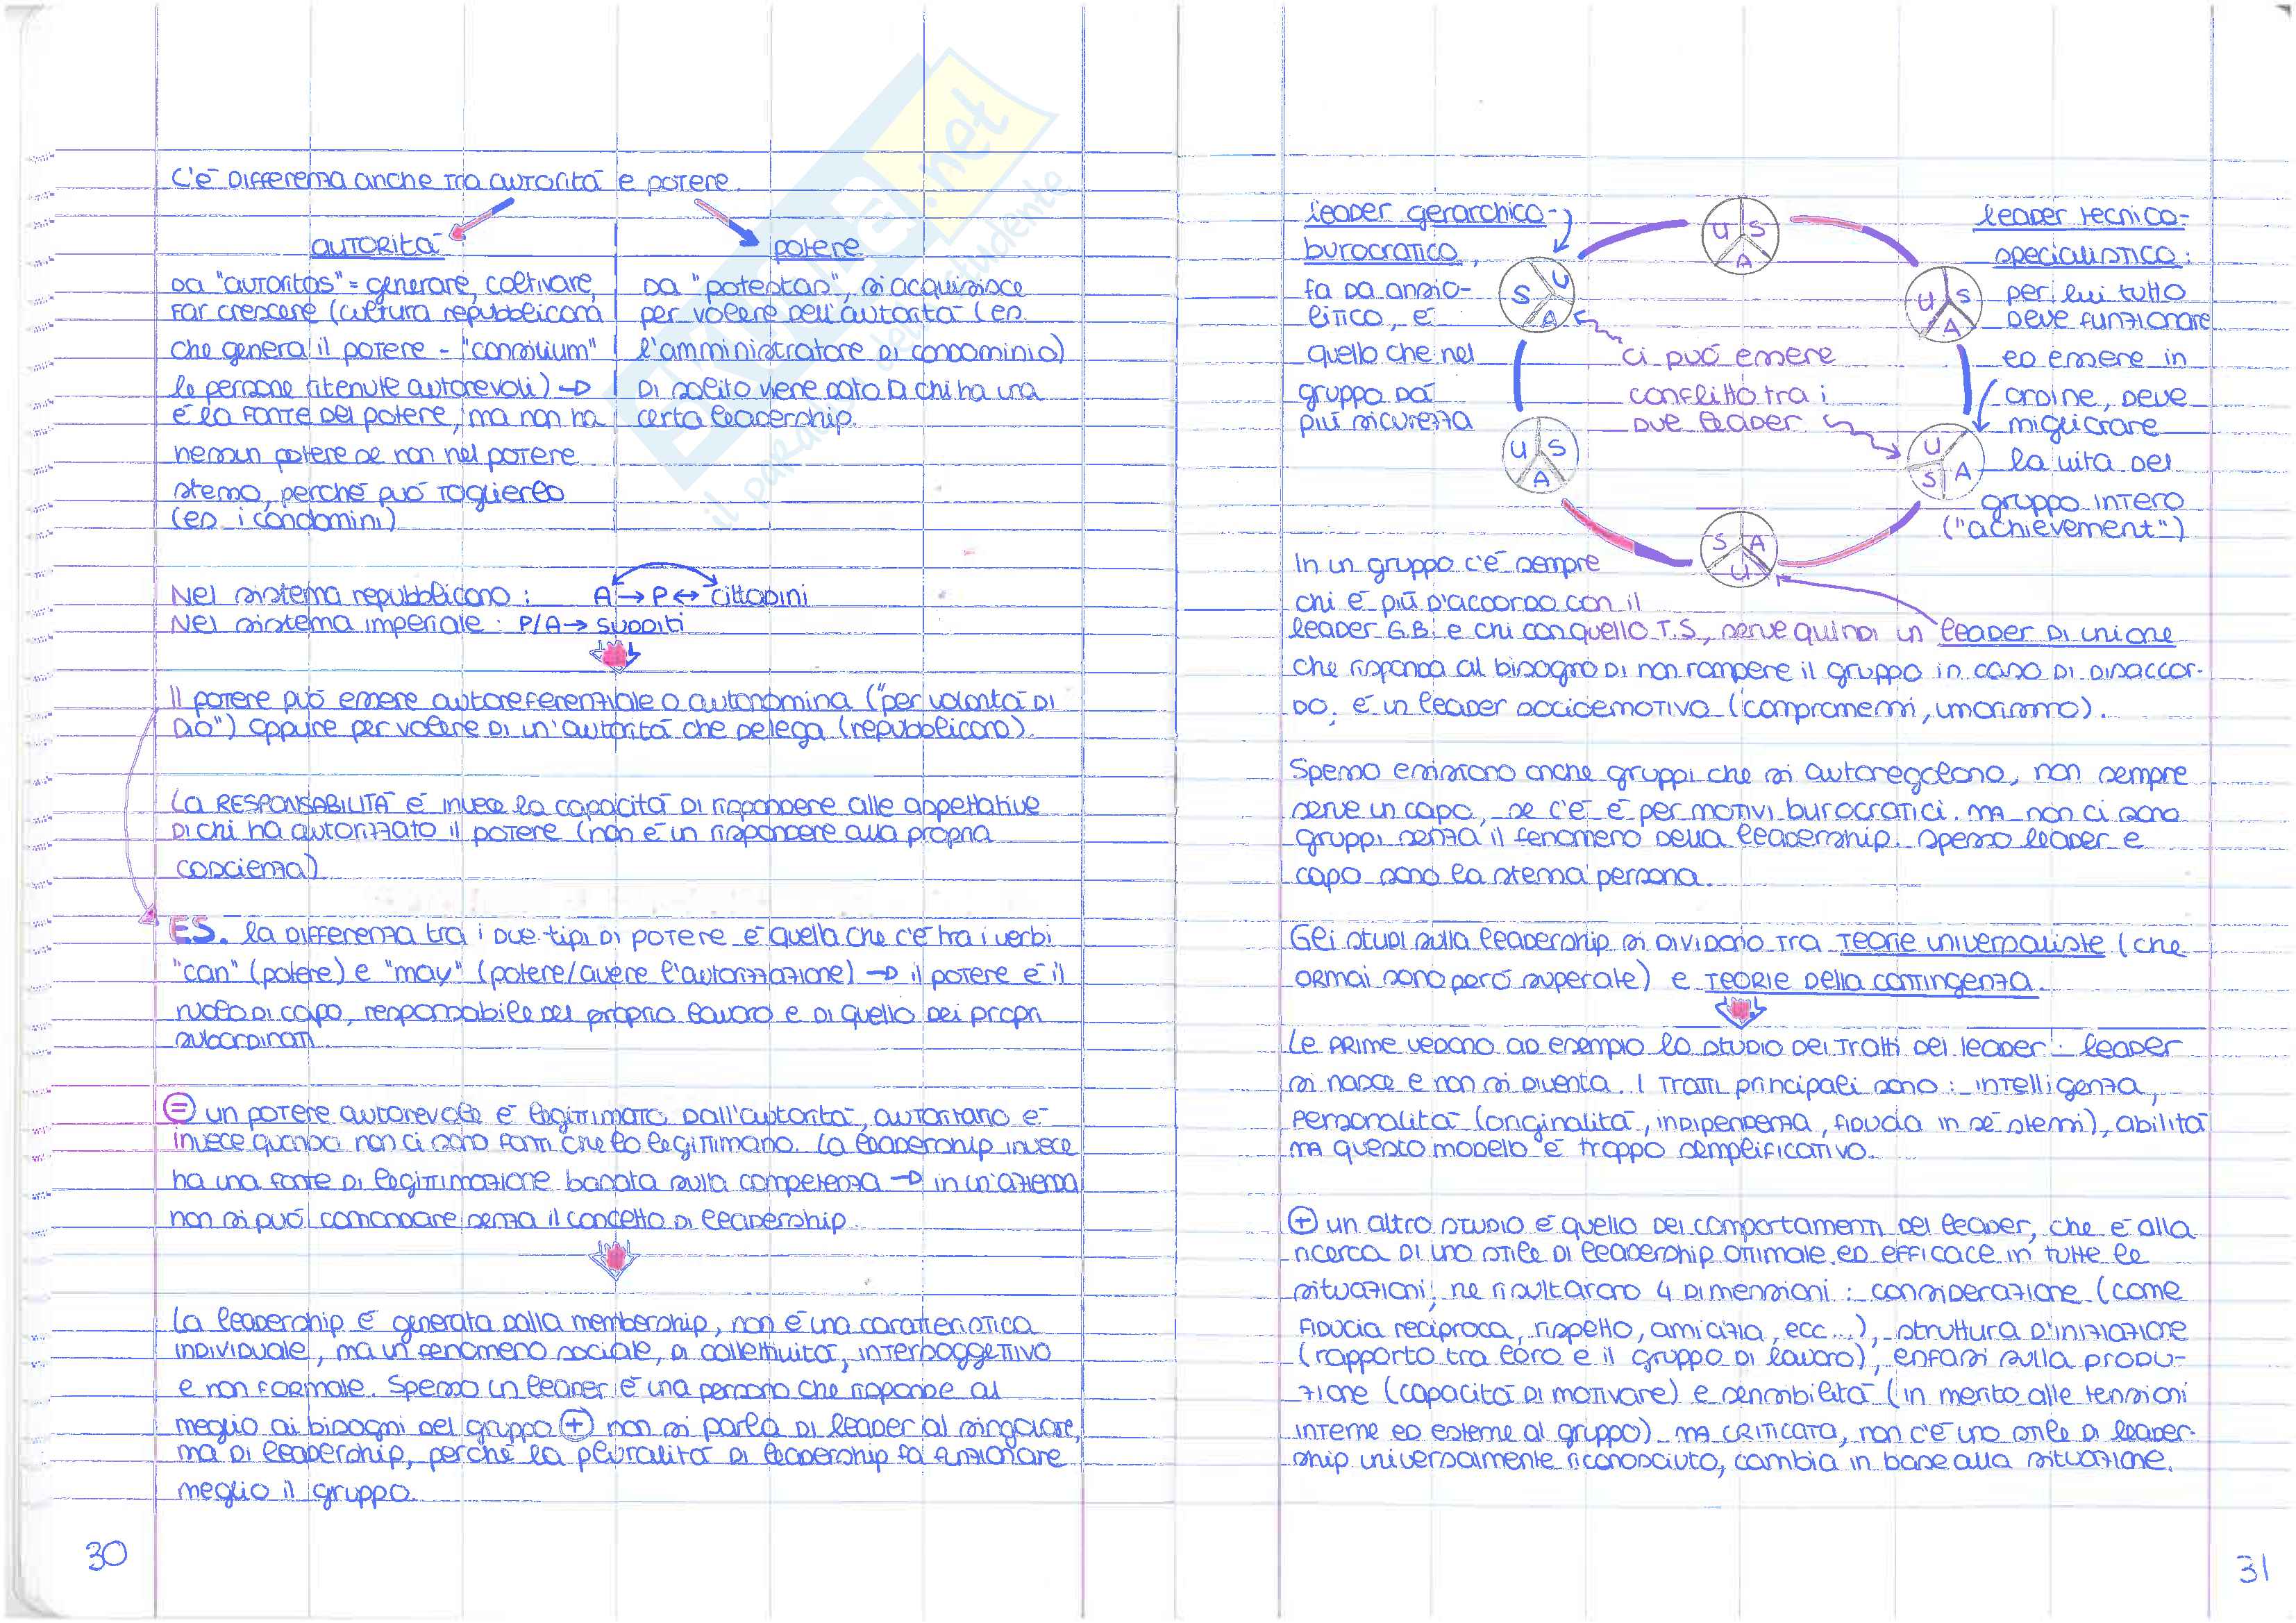 C'è DIFFERENZA anche tra autorità e potere
AUTORITÀ
Da "autoritas" = generare, coltivare,
far crescere (cultura repubblicana
che genera il potere - "consilium"
le persone ritenute autorevoli) →
è la fonte del potere, ma non ha
nessun potere se non nel potere
stesso, perché può toglierlo
(es i condomini)
potere
Da "potestas", si acquisisce
per volere dell'autorità (es
l'amministratore di condominio)
Di solito viene dato a chi ha una
certa leadership.
Nel sistema repubblicano: A → P ↔ cittadini
Nel sistema imperiale: P/A → sudditi
Il potere può essere autoreferenziale o autonomina ("per volontà di
Dio") oppure per volere di un'autorità che delega (repubblicano).
La RESPONSABILITÀ è invece la capacità di rispondere alle aspettative
di chi ha autorizzato il potere (non è un rispondere alla propria
coscienza)
ES. la differenza tra i due tipi di potere è quella che c'è tra i verbi
"can" (potere) e "may" (potere/avere l'autorizzazione) → il potere è il
ruolo di capo, responsabile del proprio lavoro e di quello dei propri
subordinati.
= un potere autorevole è legittimato dall'autorità, autoritario è
invece quando non ci sono fonti che lo legittimano. La leadership invece
ha una fonte di legittimazione basata sulla competenza → in un'azienda
non si può comandare senza il concetto di leadership.
La leadership è generata dalla membership, non è una caratteristica
individuale, ma un fenomeno sociale, di collettività, intersoggettivo
e non formale. Spesso un leader è una persona che risponde al
meglio ai bisogni del gruppo + non si parla di leader al singolare,
ma di leadership, perché la pluralità di leadership fa funzionare
meglio il gruppo.
30
leader gerarchico-
burocratico,
fa da ansio-
litico, è
quello che nel
gruppo dà
più sicurezza
U S A
S U A
U S A
U S A
U S A
S A U
ci può essere
conflitto tra i
due leader
leader tecnico-
specialistico:
per lui tutto
deve funzionare
ed essere in
ordine, deve
migliorare
la vita del
gruppo intero
("achievement")
In un gruppo c'è sempre
chi è più d'accordo con il
leader G.B. e chi con quello T.S., serve quindi un leader di unione
che risponda al bisogno di non rompere il gruppo in caso di disaccor-
do, è un leader socioemotivo (compromessi, umorismo).
Spesso esistono anche gruppi che si autoregolano, non sempre
serve un capo, se c'è è per motivi burocratici. Ma non ci sono
gruppi senza il fenomeno della leadership. Spesso leader e
capo sono la stessa persona.
Gli studi sulla leadership si dividono tra teorie universaliste (che
ormai sono però superate) e teorie della contingenza.
Le prime vedono ad esempio lo studio dei tratti del leader: leader
si nasce e non si diventa. I tratti principali sono: intelligenza,
personalità (originalità, indipendenza, fiducia in sé stessi), abilità
ma questo modello è troppo semplificativo.
+ un altro studio è quello dei comportamenti del leader, che è alla
ricerca di uno stile di leadership ottimale ed efficace in tutte le
situazioni; ne risultarono 4 dimensioni: considerazione (come
fiducia reciproca, rispetto, amicizia, ecc...), struttura d'iniziazione
(rapporto tra loro e il gruppo di lavoro), enfasi sulla produ-
zione (capacità di motivare) e sensibilità (in merito alle tensioni
interne ed esterne al gruppo). Ma criticata, non c'è uno stile di leader-
ship universalmente riconosciuto, cambia in base alla situazione.
31